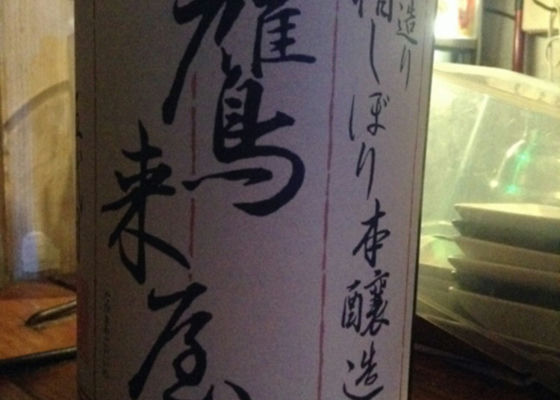 造り
槽しぼり本醸造
鷹来屋